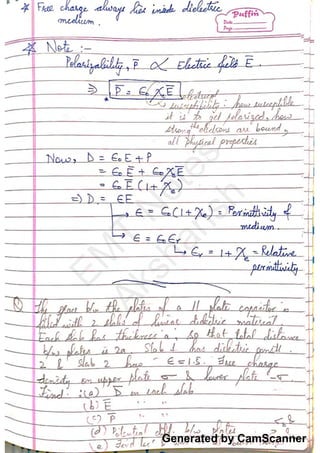 * Free charge always lies inside dielectric
medium.
Puffin
Date
Page
* Note :-
Polarizability, P̄ ∝ Electric field Ē.
⇒ P̄ = ε₀ χₑ Ē
electrical
susceptibility : how susceptible
it is to get polarized, how
strong the electrons are bound,
all physical properties
Now, D = ε₀E + P
= ε₀Ē + ε₀χₑĒ
= ε₀Ē (1 + χₑ)
⇒ D = εE
→ ε = ε₀(1 + χₑ) = Permittivity of
medium.
→ ε = ε₀εᵣ
→ εᵣ = 1 + χₑ = Relative
permittivity
Q The space b/w the plates of a || plate capacitor is
filled with 2 slabs of linear dielectric material.
Each slab has thickness 'a', so that total distance
b/w plates is 2a. Slab 1 has dielectric const.
2 & Slab 2 have ε = 1.5. Free charge
density on upper plate σ & lower plate -σ
Find : (a) D in each slab
(b) E " "
(c) P " "
(d) Potential diff. b/w plates
(e) Find
Generated by CamScanner